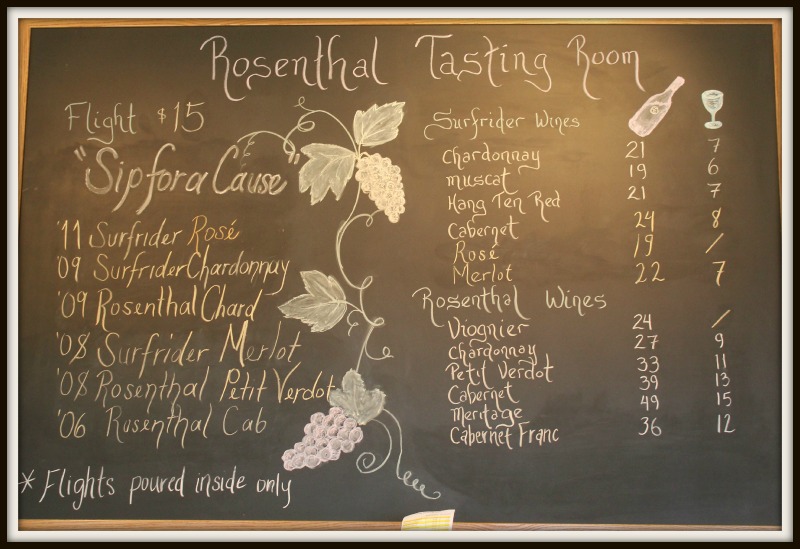 Rosenthal Tasting Room
Flight $15
"Sip for a Cause"
'11 Surfrider Rosé
'09 Surfrider Chardonnay
'09 Rosenthal Chard
'08 Surfrider Merlot
'08 Rosenthal Petit Verdot
'06 Rosenthal Cab
* Flights poured inside only
Surfrider Wines
Chardonnay 21 7
muscat 19 6
Hang Ten Red 21 7
Cabernet 24 8
Rosé 19 /
Merlot 22 7
Rosenthal Wines
Viognier 24 /
Chardonnay 27 9
Petit Verdot 33 11
Cabernet 39 13
Meritage 49 15
Cabernet Franc 36 12